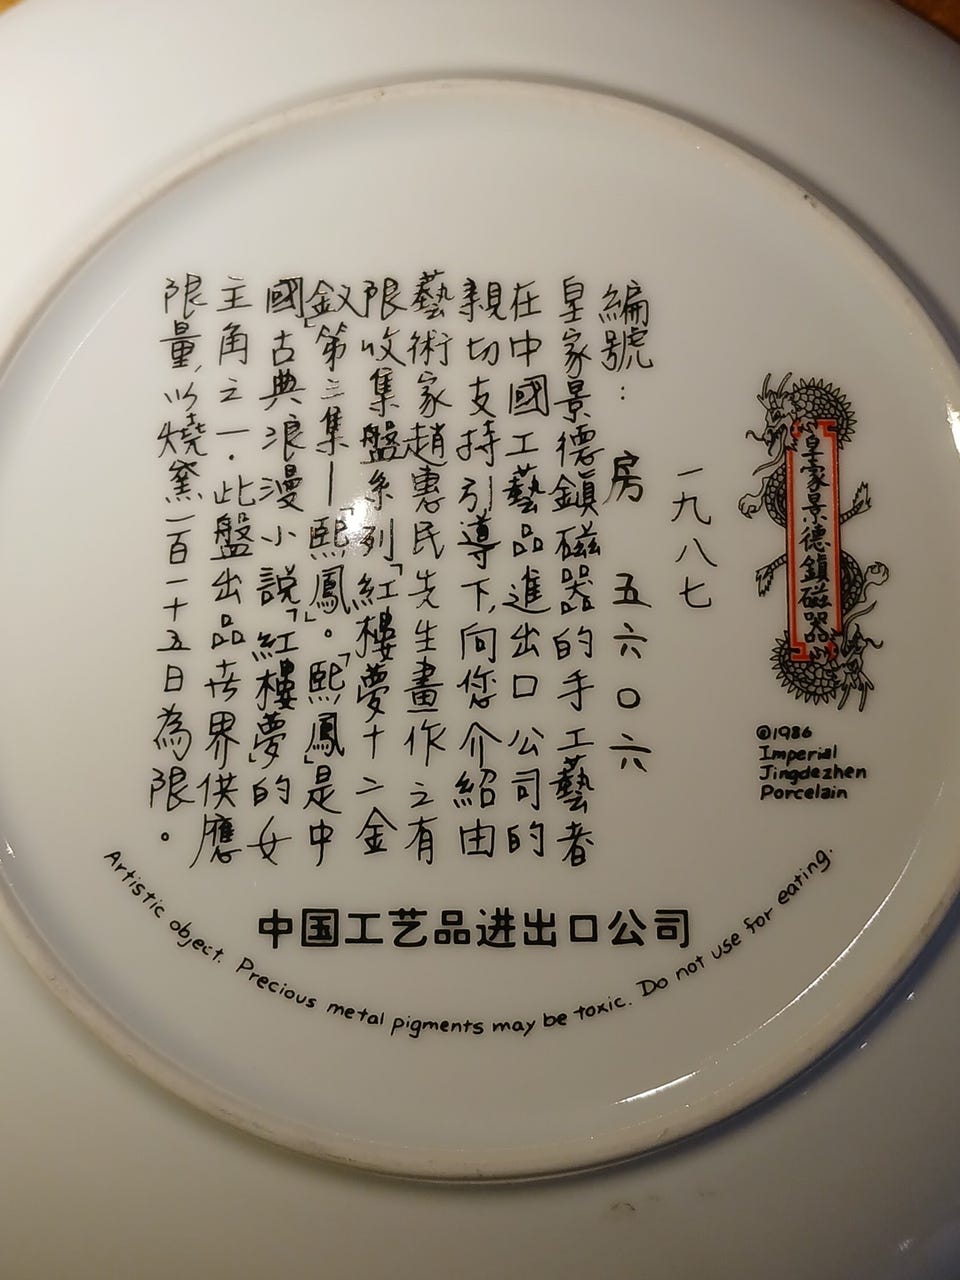 皇家景德鎮磁器
©1986
Imperial
Jingdezhen
Porcelain
一九八七
編號：房 五六〇六
皇家景德鎮磁器的手工藝者
在中國工藝品進出口公司的
親切支持引導下，向您介紹由
藝術家趙惠民先生畫作之有
限收集盤系列「紅樓夢十二金
釵」第三集—「熙鳳」。「熙鳳」是中
國古典浪漫小說「紅樓夢」的女
主角之一．此盤出品世界供應
限量，以燒窯一百一十五日為限。
中国工艺品进出口公司
Artistic object. Precious metal pigments may be toxic. Do not use for eating.